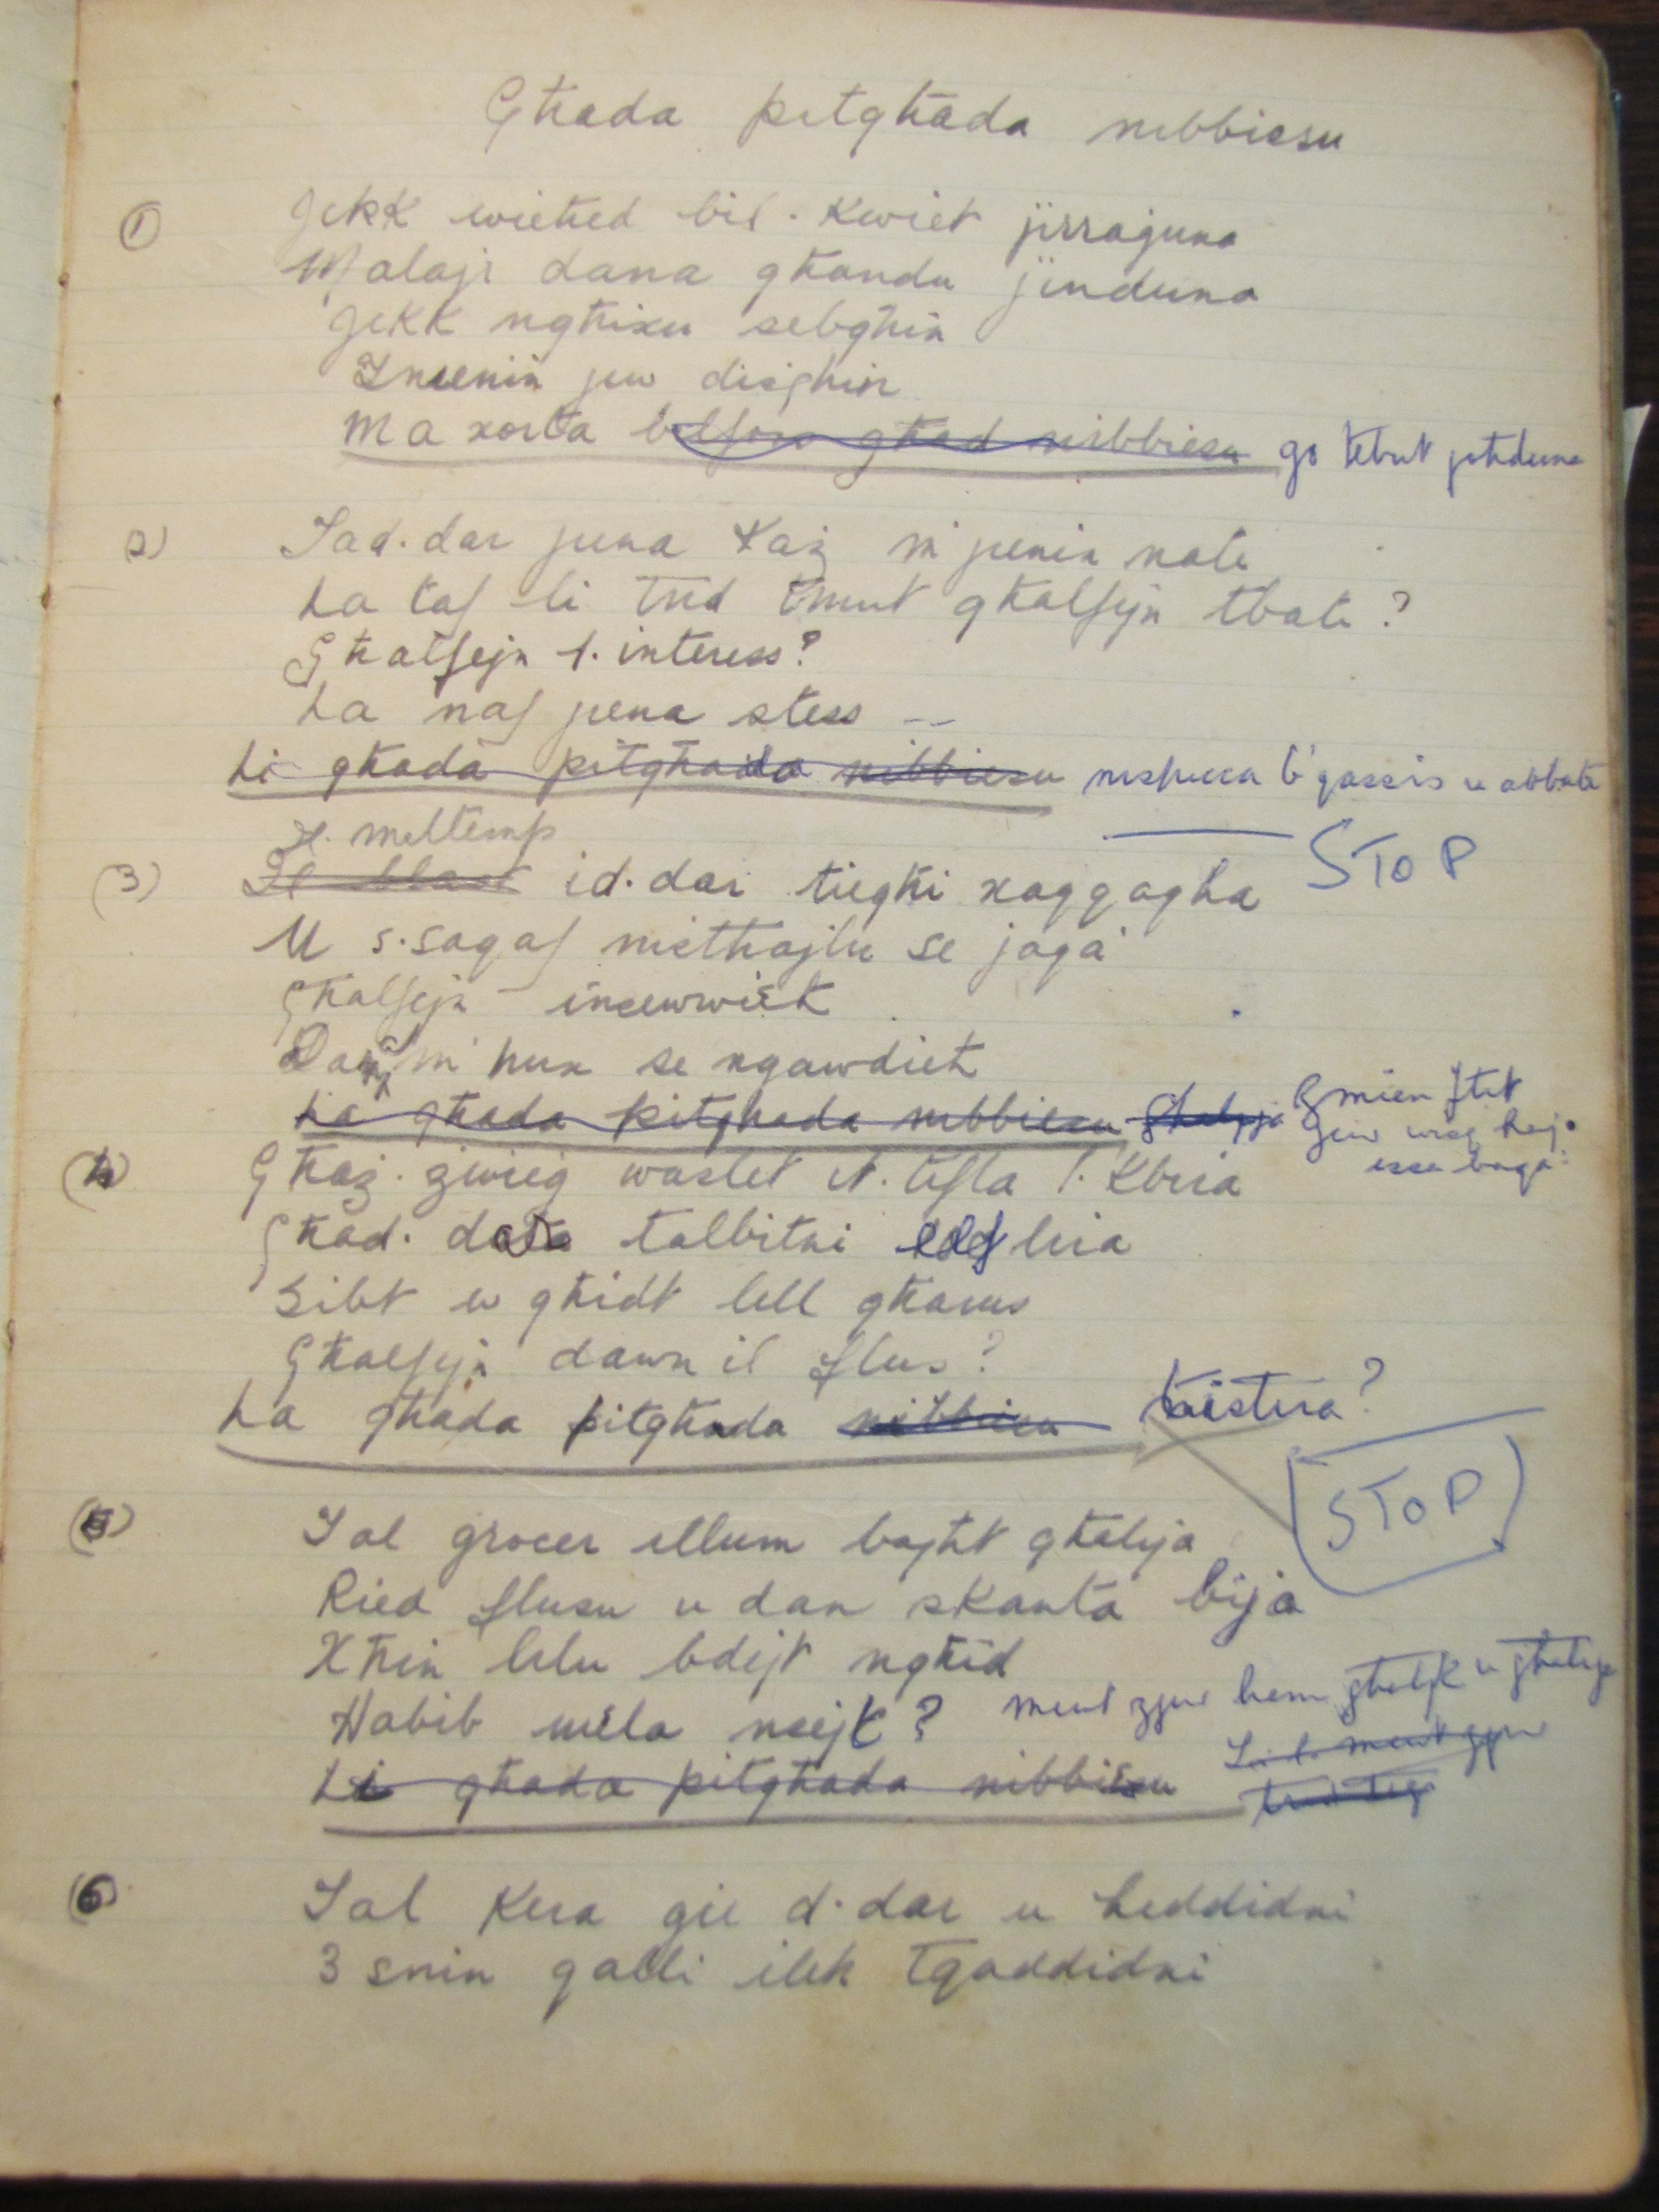 Għada pitghada nibbiesu
① Jekk wieħed bil-kwiet jirraġuna
Malajr dana għandu jinduna
Jekk ngħixu sebgħin
Tnienin jew disgħin
Ma xorta għad nibbiesu go tebut joħduna
(2) Ġad-dar jiena każ m'jienin nati
La taf li trid tmut għalfejn tbati?
Għalfejn l-interess?
La naf jena stess --
Li għada pitghada nibbiesu nispicca b' qassis u abbati
STOP
Il-maltemp
(3) id-dar tiegħi xaqqagħha
U s-saqaf nistħajlu se jaqa'
Għalfejn inkewwiet
Dan m'hux se ngawdieh
La għada pitghada nibbiesu Zmien ftit
jew wisq haj.
issa baqa'
(4) Għaż-żwieġ waslet it-tifla l-kbira
Għad-dota talbitni elf lira
Sibt u għidt lill għarus
Għalfejn dawn il flus?
La għada pitghada nibbiesu tistira?
STOP
(5) Tal grocer illum bagħt għalija
Ried flusu u dan skanta bija
Xħin lilu bdejt ngħid
Habib mela nsejt? mewt zgur hemm għalik u għalija
Li għada pitghada nibbiesu
(6) Tal kera ġie d-dar u heddidni
3 snin qalli ilek tqaddidni